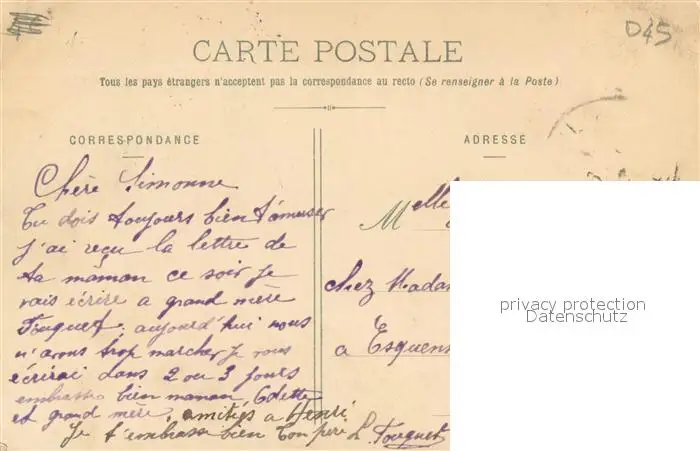 D45
CARTE POSTALE
Tous les pays étrangers n'acceptent pas la correspondance au recto (Se renseigner à la Poste)
CORRESPONDANCE
ADRESSE
Chère Simonne
Tu dois toujours bien t'amuser
J'ai reçu la lettre de
ta māman ce soir Je
vais écrire a grand mère
Touquet. aujourd'hui nous
n'avons trop marcher Je vous
écrirai dans 2 ou 3 jours
embrasse bien maman Odette
et grand mère. amitiés a Henri
Je t'embrasse bien Ton père L. Touquet
Melle
chez Madam
a Esquen
privacy protection
Datenschutz